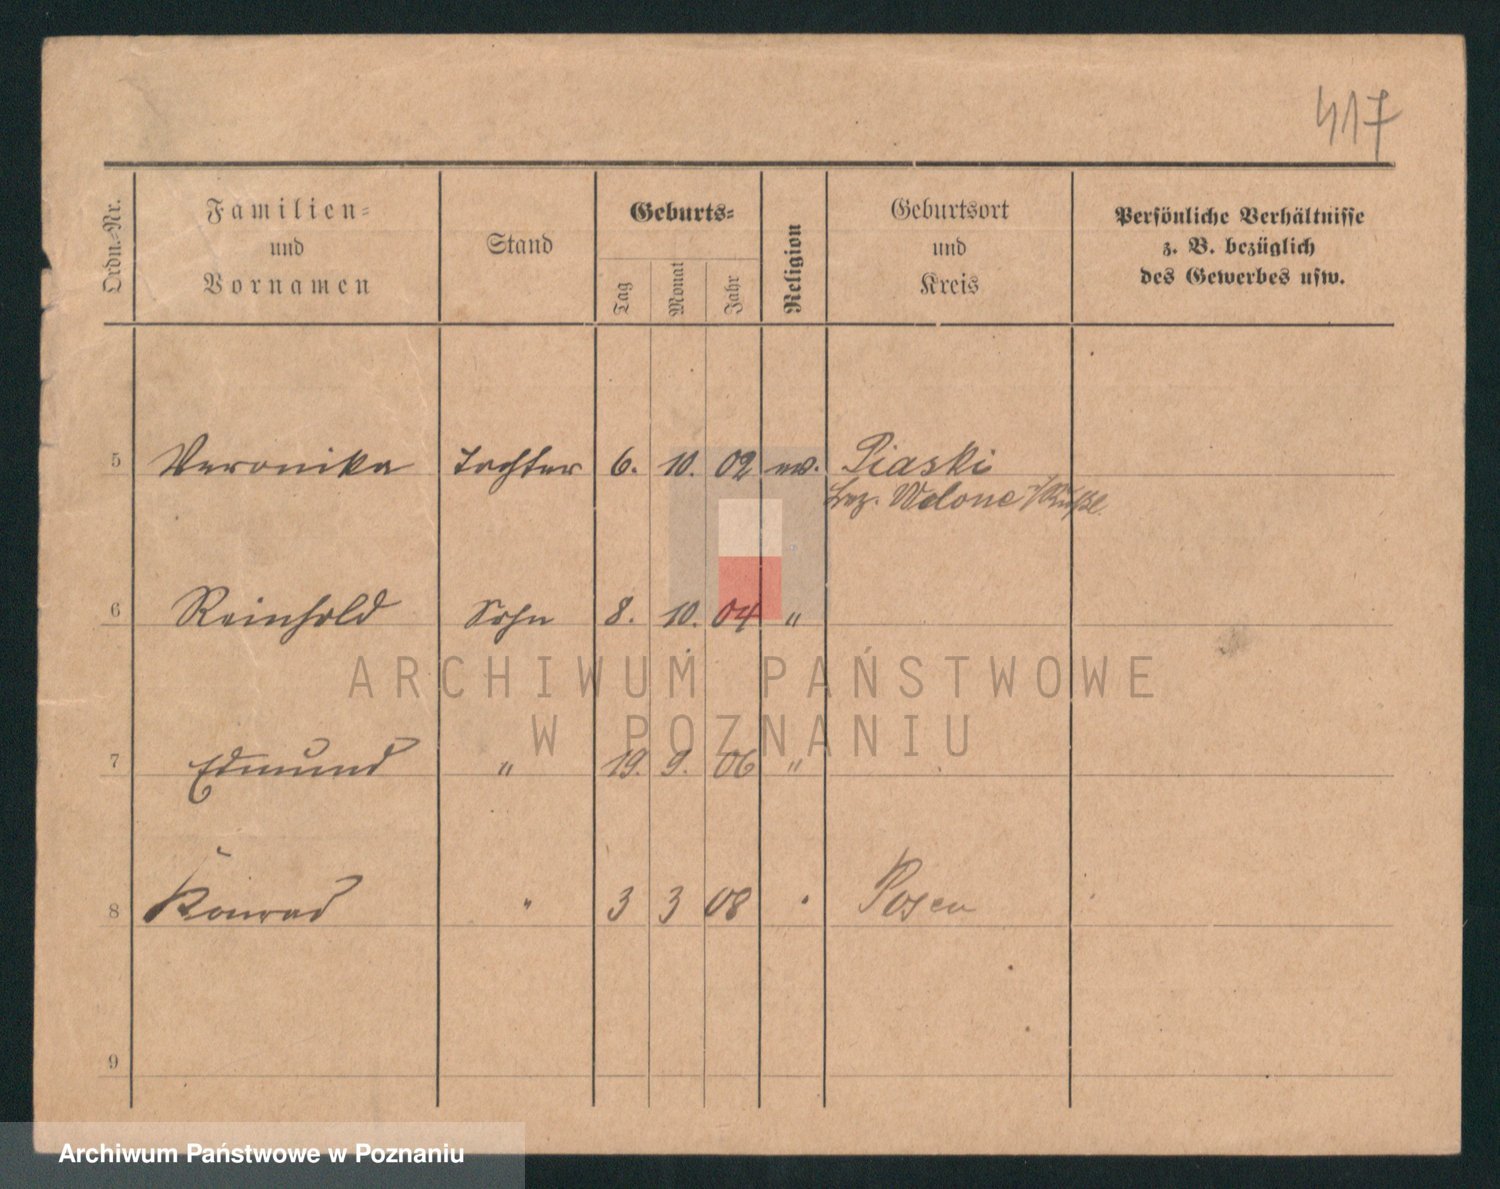 417
Ordn.-Nr.
Familien-
und
Vornamen
Stand
Geburts-
Tag
Monat
Jahr
Religion
Geburtsort
und
Kreis
Persönliche Verhältnisse
z. B. bezüglich
des Gewerbes usw.
5 Veronika Tochter 6. 10. 02 ev. Piaski
Bez.
6 Reinhold Sohn 8. 10. 04 "
ARCHIWUM PAŃSTWOWE
W POZNANIU
7 Edmund " 19. 9. 06 "
8 Konrad " 3 3 08 " Posen
9
Archiwum Państwowe w Poznaniu